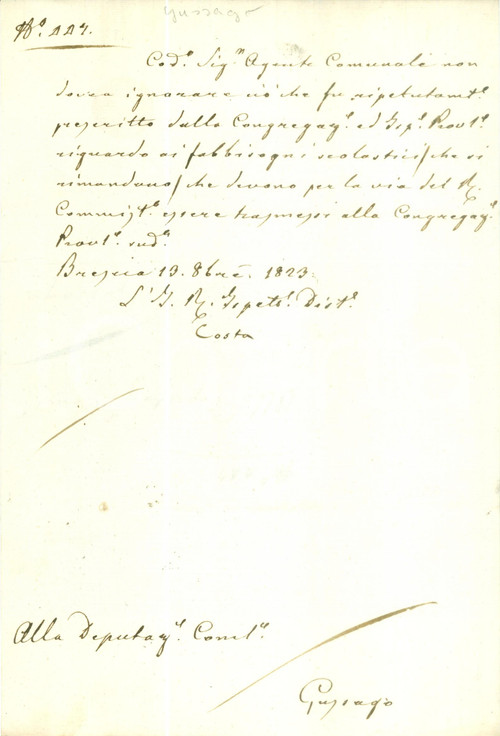 Gussago
N.º 227.
Cod.º Sig.ʳ Agente Comunale non
dovea ignorare ciò che fu ripetutamt.ᵉ
prescritto dalla Congregaz.ᵉ ed Isp.ᵉ Provl.ᵉ
riguardo ai fabbisogni scolastici /che si
rimandono/ che devono per la via del R.
Commiss.º essere trasmessi alla Congregaz.ᵉ
Provl.ᵉ sud.ᵃ
Brescia 13. 8brē. 1823.
L'I. R. Ispett.ᵉ Dist.ᵉ
Costa
Alla Deputaz.ᵉ Coml.ᵉ
Gussago